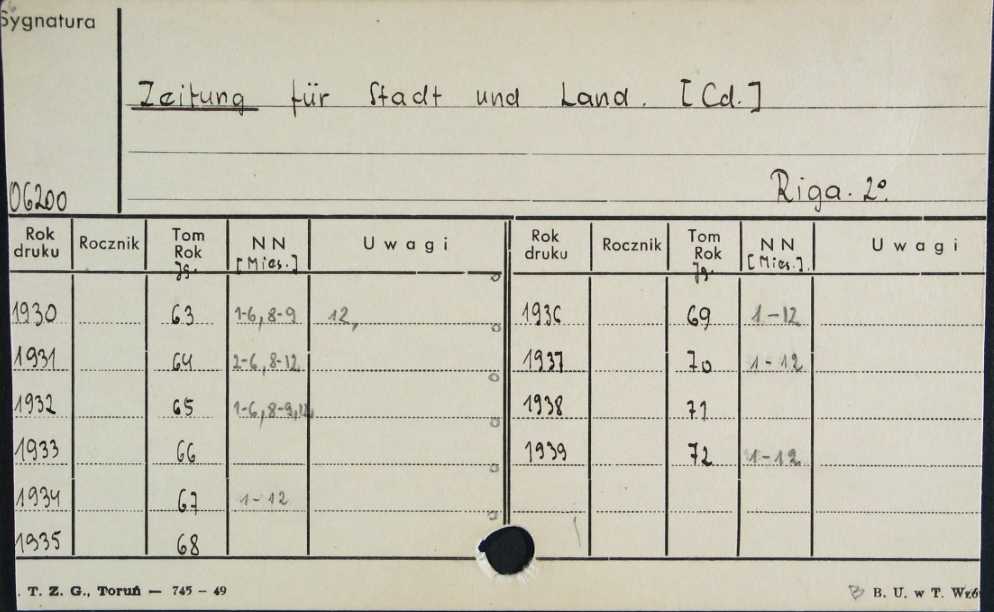 Sygnatura
Zeitung für Stadt und Land. [Cd.]
06200
Riga. 2º.
Rok druku Rocznik Tom Rok Jg. NN [Mies.] Uwagi Rok druku Rocznik Tom Rok Jg. NN [Mies.] Uwagi
1930 63 1-6, 8-9 12, 1936 69 1-12
1931 64 2-6, 8-12 1937 70 1-12
1932 65 1-6, 8-9, 12, 1938 71
1933 66 1939 72 1-12
1934 67 1-12
1935 68
. T. Z. G., Toruń — 745 – 49
B. U. w T. Wzó